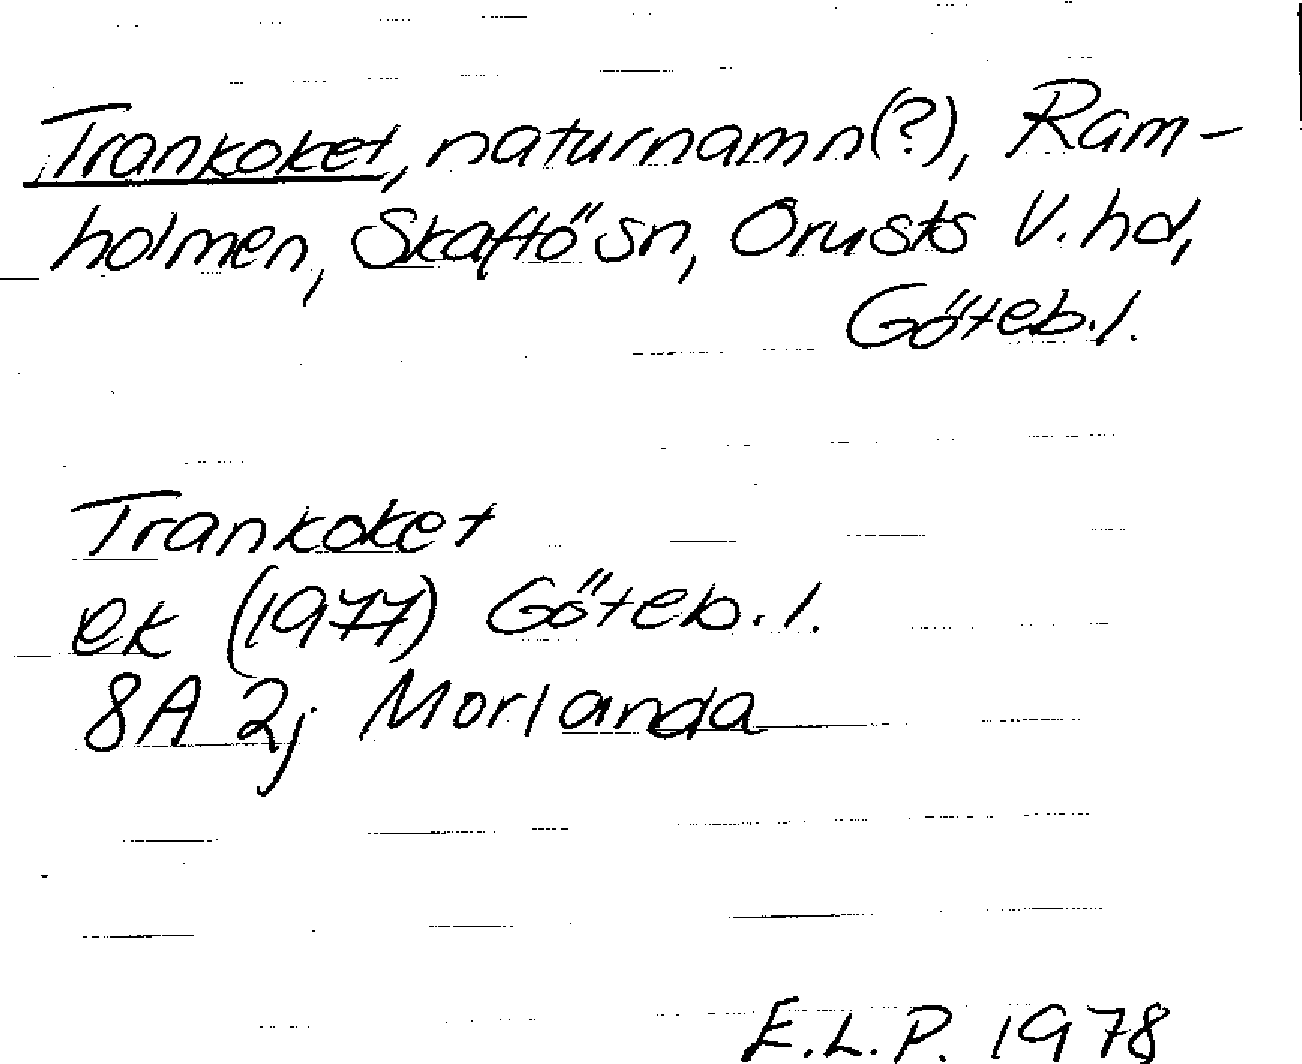 Trankoket, naturnamn(?), Ram-
holmen, Skaftö sn, Orusts V. hd,
Göteb. l.
Trankoket
ek (1977) Göteb. l.
8A 2j Morlanda
E.L.P. 1978